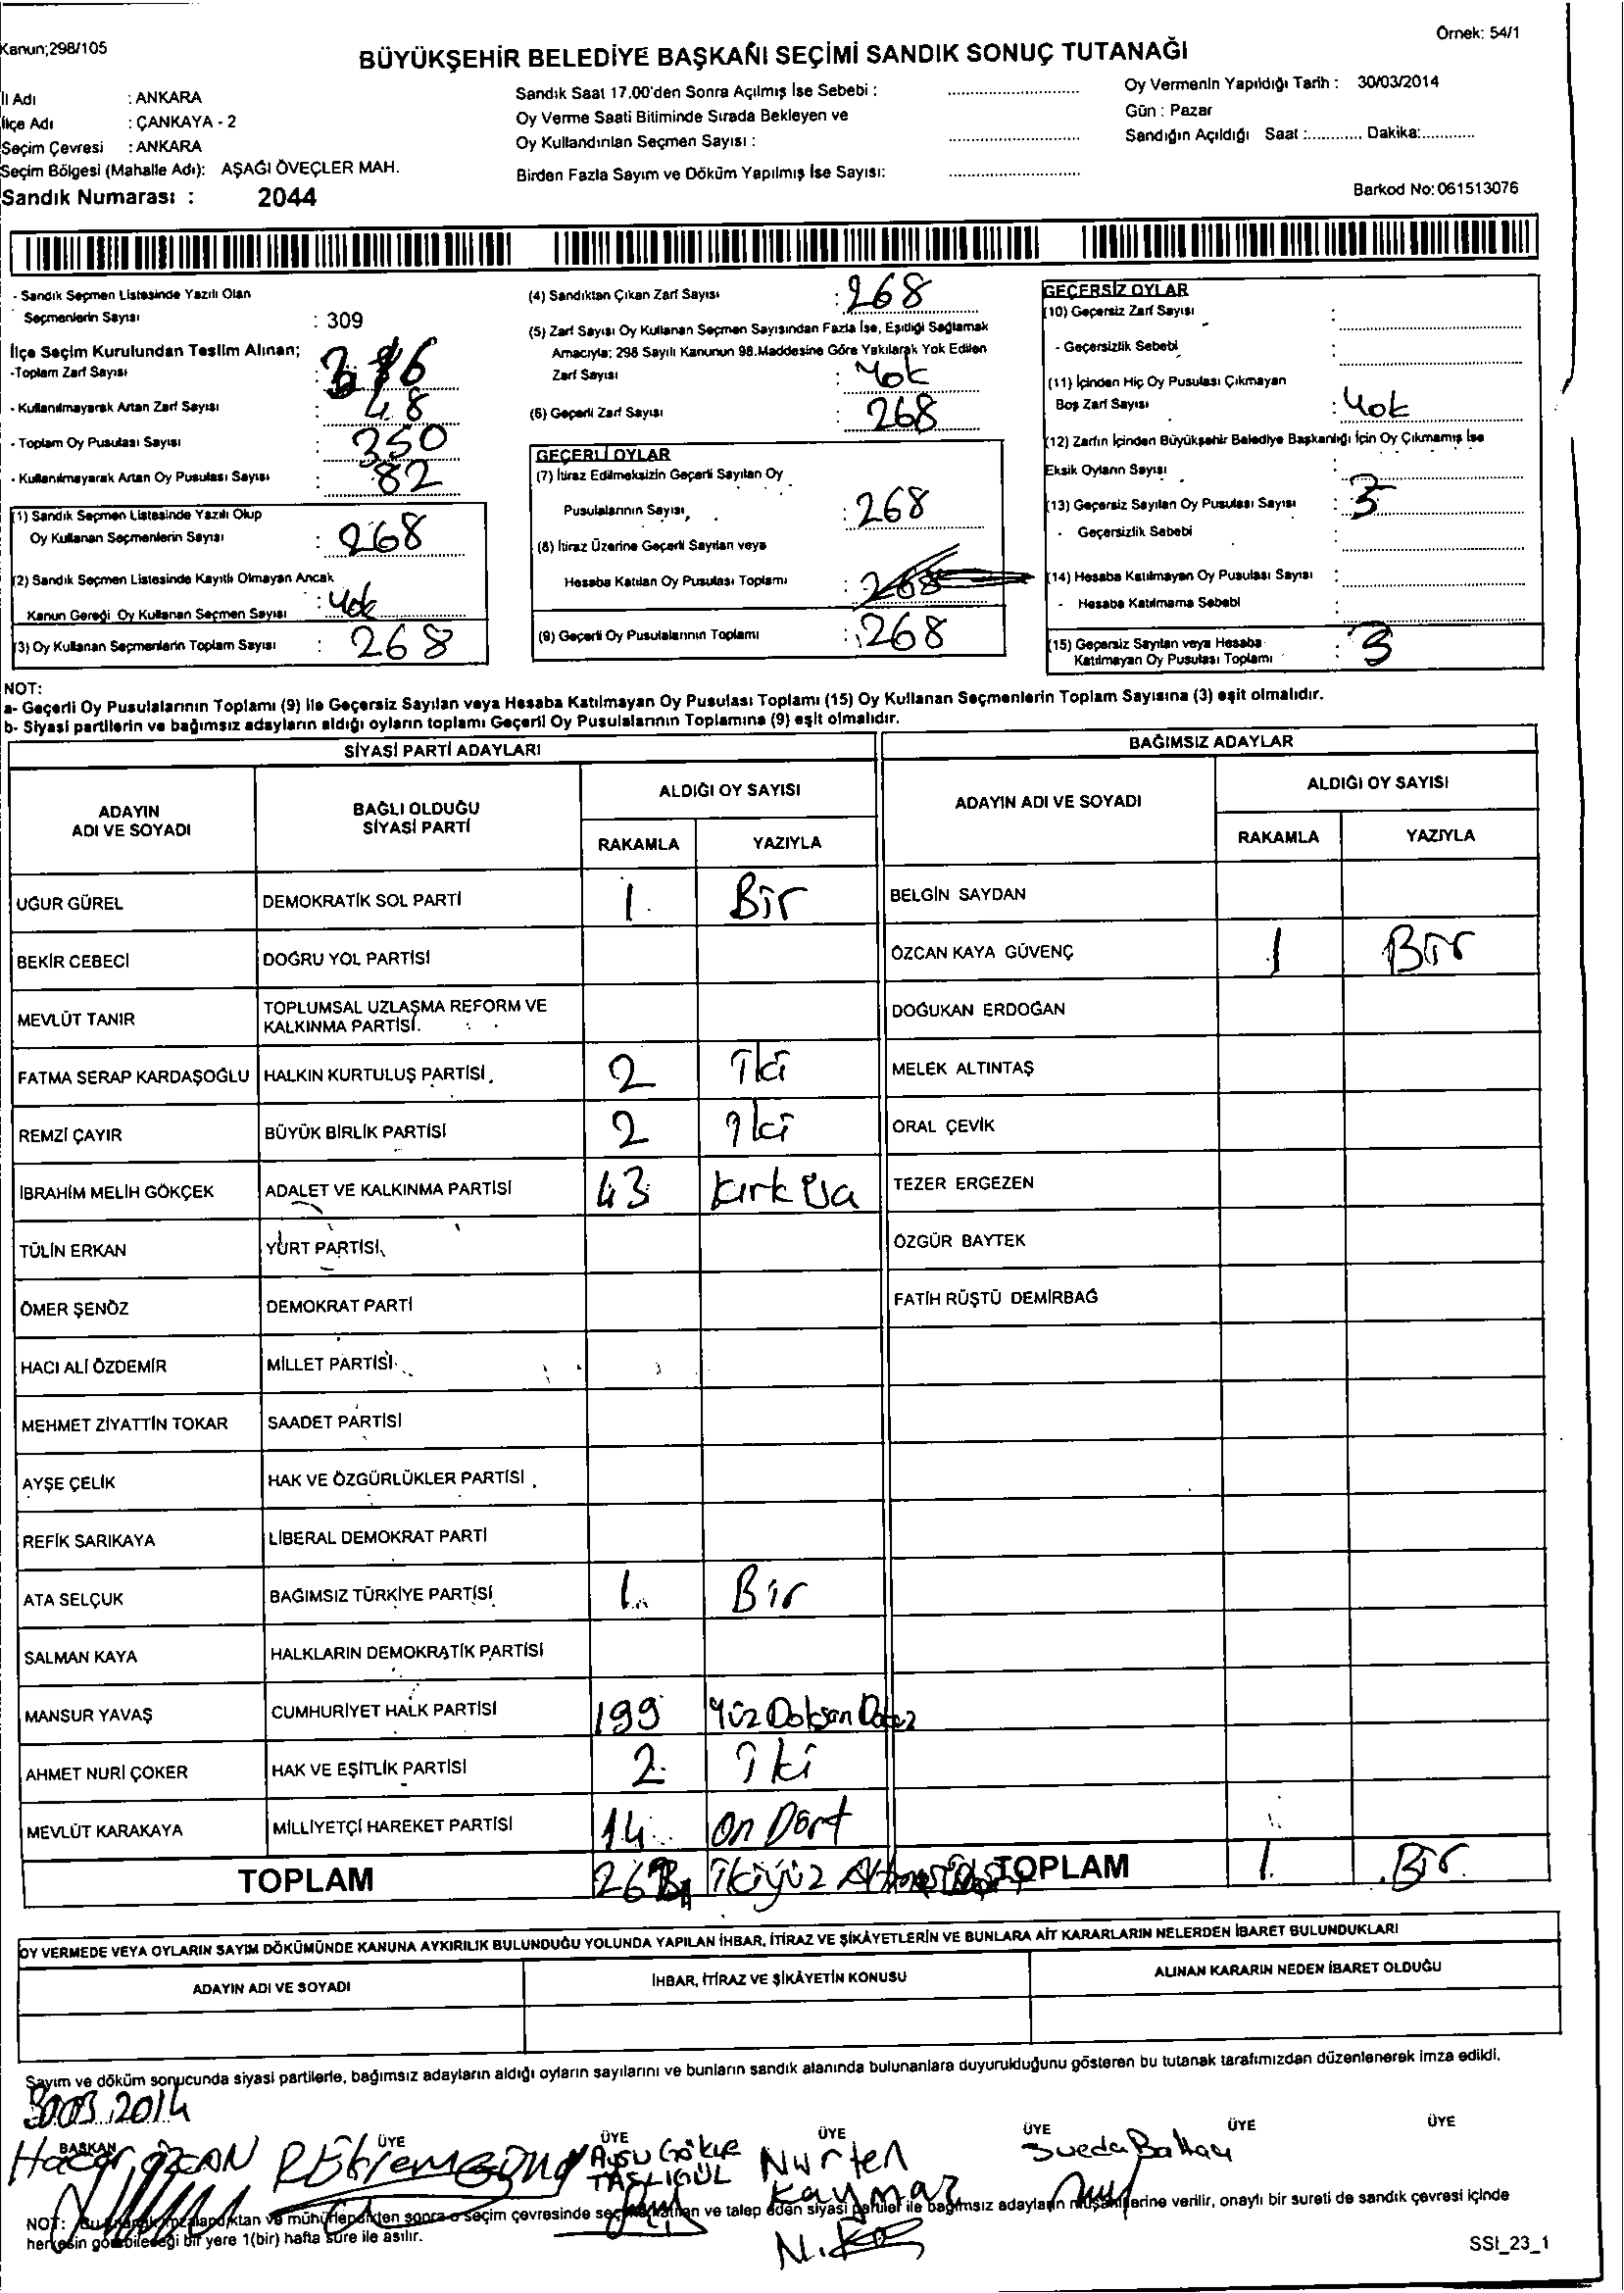 Kanun;298/105
Örnek: 54/1
BÜYÜKŞEHİR BELEDİYE BAŞKANI SEÇİMİ SANDIK SONUÇ TUTANAĞI
İl Adı : ANKARA
İlçe Adı : ÇANKAYA - 2
Seçim Çevresi : ANKARA
Seçim Bölgesi (Mahalle Adı): AŞAĞI ÖVEÇLER MAH.
Sandık Numarası : 2044
Sandık Saat 17.00'den Sonra Açılmış İse Sebebi :
Oy Verme Saati Bitiminde Sırada Bekleyen ve
Oy Kullandırılan Seçmen Sayısı :
Birden Fazla Sayım ve Döküm Yapılmış İse Sayısı:
Oy Vermenin Yapıldığı Tarih : 30/03/2014
Gün : Pazar
Sandığın Açıldığı Saat :............ Dakika:............
Barkod No: 061513076
- Sandık Seçmen Listesinde Yazılı Olan
Seçmenlerin Sayısı : 309
İlçe Seçim Kurulundan Teslim Alınan;
-Toplam Zarf Sayısı :
- Kullanılmayarak Artan Zarf Sayısı : 48
- Toplam Oy Pusulası Sayısı : 350
- Kullanılmayarak Artan Oy Pusulası Sayısı : 82
(1) Sandık Seçmen Listesinde Yazılı Olup
Oy Kullanan Seçmenlerin Sayısı : 268
(2) Sandık Seçmen Listesinde Kayıtlı Olmayan Ancak
Kanun Gereği Oy Kullanan Seçmen Sayısı : Yok
(3) Oy Kullanan Seçmenlerin Toplam Sayısı : 268
(4) Sandıktan Çıkan Zarf Sayısı : 268
(5) Zarf Sayısı Oy Kullanan Seçmen Sayısından Fazla İse, Eşitliği Sağlamak
Amacıyla; 298 Sayılı Kanunun 98.Maddesine Göre Yakılarak Yok Edilen
Zarf Sayısı : Yok
(6) Geçerli Zarf Sayısı : 268
GEÇERLİ OYLAR
(7) İtiraz Edilmeksizin Geçerli Sayılan Oy
Pusulalarının Sayısı, : 268
(8) İtiraz Üzerine Geçerli Sayılan veya
Hesaba Katılan Oy Pusulası Toplamı : 268
(9) Geçerli Oy Pusulalarının Toplamı : 268
GEÇERSİZ OYLAR
(10) Geçersiz Zarf Sayısı :
- Geçersizlik Sebebi :
(11) İçinden Hiç Oy Pusulası Çıkmayan
Boş Zarf Sayısı : Yok
(12) Zarfın İçinden Büyükşehir Belediye Başkanlığı İçin Oy Çıkmamış İse
Eksik Oyların Sayısı :
(13) Geçersiz Sayılan Oy Pusulası Sayısı : 3
- Geçersizlik Sebebi :
(14) Hesaba Katılmayan Oy Pusulası Sayısı :
- Hesaba Katılmama Sebebi :
(15) Geçersiz Sayılan veya Hesaba
Katılmayan Oy Pusulası Toplamı : 3
NOT:
a- Geçerli Oy Pusulalarının Toplamı (9) ile Geçersiz Sayılan veya Hesaba Katılmayan Oy Pusulası Toplamı (15) Oy Kullanan Seçmenlerin Toplam Sayısına (3) eşit olmalıdır.
b- Siyasi partilerin ve bağımsız adayların aldığı oyların toplamı Geçerli Oy Pusulalarının Toplamına (9) eşit olmalıdır.
SİYASİ PARTİ ADAYLARI
BAĞIMSIZ ADAYLAR
ADAYIN ADI VE SOYADI
BAĞLI OLDUĞU SİYASİ PARTİ
ALDIĞI OY SAYISI
RAKAMLA YAZIYLA
ADAYIN ADI VE SOYADI
ALDIĞI OY SAYISI
RAKAMLA YAZIYLA
UĞUR GÜREL DEMOKRATİK SOL PARTİ 1. Bir BELGİN SAYDAN
BEKİR CEBECİ DOĞRU YOL PARTİSİ ÖZCAN KAYA GÜVENÇ 1 Bir
MEVLÜT TANIR TOPLUMSAL UZLAŞMA REFORM VE KALKINMA PARTİSİ. DOĞUKAN ERDOĞAN
FATMA SERAP KARDAŞOĞLU HALKIN KURTULUŞ PARTİSİ 2 iki MELEK ALTINTAŞ
REMZİ ÇAYIR BÜYÜK BİRLİK PARTİSİ 2 iki ORAL ÇEVİK
İBRAHİM MELİH GÖKÇEK ADALET VE KALKINMA PARTİSİ 43 kırk TEZER ERGEZEN
TÜLİN ERKAN YURT PARTİSİ ÖZGÜR BAYTEK
ÖMER ŞENÖZ DEMOKRAT PARTİ FATİH RÜŞTÜ DEMİRBAĞ
HACI ALİ ÖZDEMİR MİLLET PARTİSİ
MEHMET ZİYATTİN TOKAR SAADET PARTİSİ
AYŞE ÇELİK HAK VE ÖZGÜRLÜKLER PARTİSİ
REFİK SARIKAYA LİBERAL DEMOKRAT PARTİ
ATA SELÇUK BAĞIMSIZ TÜRKİYE PARTİSİ 1. Bir
SALMAN KAYA HALKLARIN DEMOKRATİK PARTİSİ
MANSUR YAVAŞ CUMHURİYET HALK PARTİSİ 199 Yüz Doksan
AHMET NURİ ÇOKER HAK VE EŞİTLİK PARTİSİ 2. iki
MEVLÜT KARAKAYA MİLLİYETÇİ HAREKET PARTİSİ 14 On Dört
TOPLAM ikiyüz TOPLAM 1. Bir.
OY VERMEDE VEYA OYLARIN SAYIM DÖKÜMÜNDE KANUNA AYKIRILIK BULUNDUĞU YOLUNDA YAPILAN İHBAR, İTİRAZ VE ŞİKÂYETLERİN VE BUNLARA AİT KARARLARIN NELERDEN İBARET BULUNDUKLARI
ADAYIN ADI VE SOYADI İHBAR, İTİRAZ VE ŞİKÂYETİN KONUSU ALINAN KARARIN NEDEN İBARET OLDUĞU
Sayım ve döküm sonucunda siyasi partilerle, bağımsız adayların aldığı oyların sayılarını ve bunların sandık alanında bulunanlara duyurulduğunu gösteren bu tutanak tarafımızdan düzenlenerek imza edildi.
30.03.2014
BAŞKAN ÜYE ÜYE ÜYE ÜYE ÜYE ÜYE
Hacer ÖZCAN
Nurten Kaymaz
NOT: Bu tutanak imzalandıktan ve mühürlendikten sonra o seçim çevresinde seçime katılan ve talep eden siyasi partiler ile bağımsız adayların müşahitlerine verilir, onaylı bir sureti de sandık çevresi içinde
herkesin görebileceği bir yere 1(bir) hafta süre ile asılır.
SSI_23_1